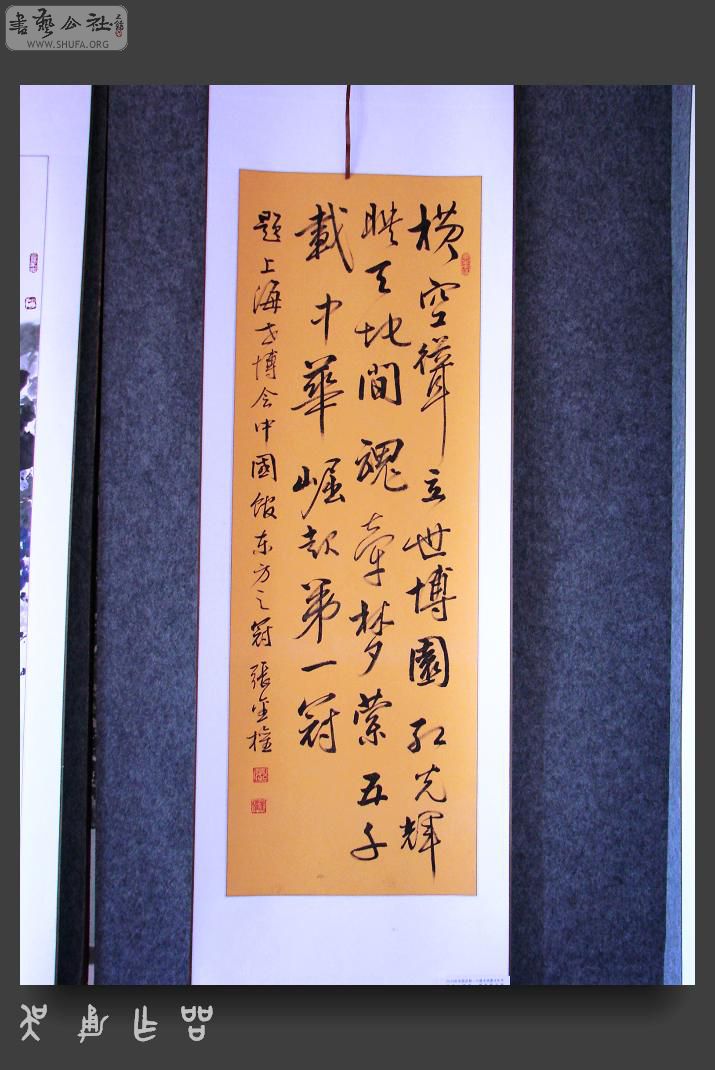 書藝公社
WWW.SHUFA.ORG
横空聳立世博園红光輝
映天地間魂牽梦縈五千
載中華崛起第一冠
题上海世博会中國馆东方之冠 張金權